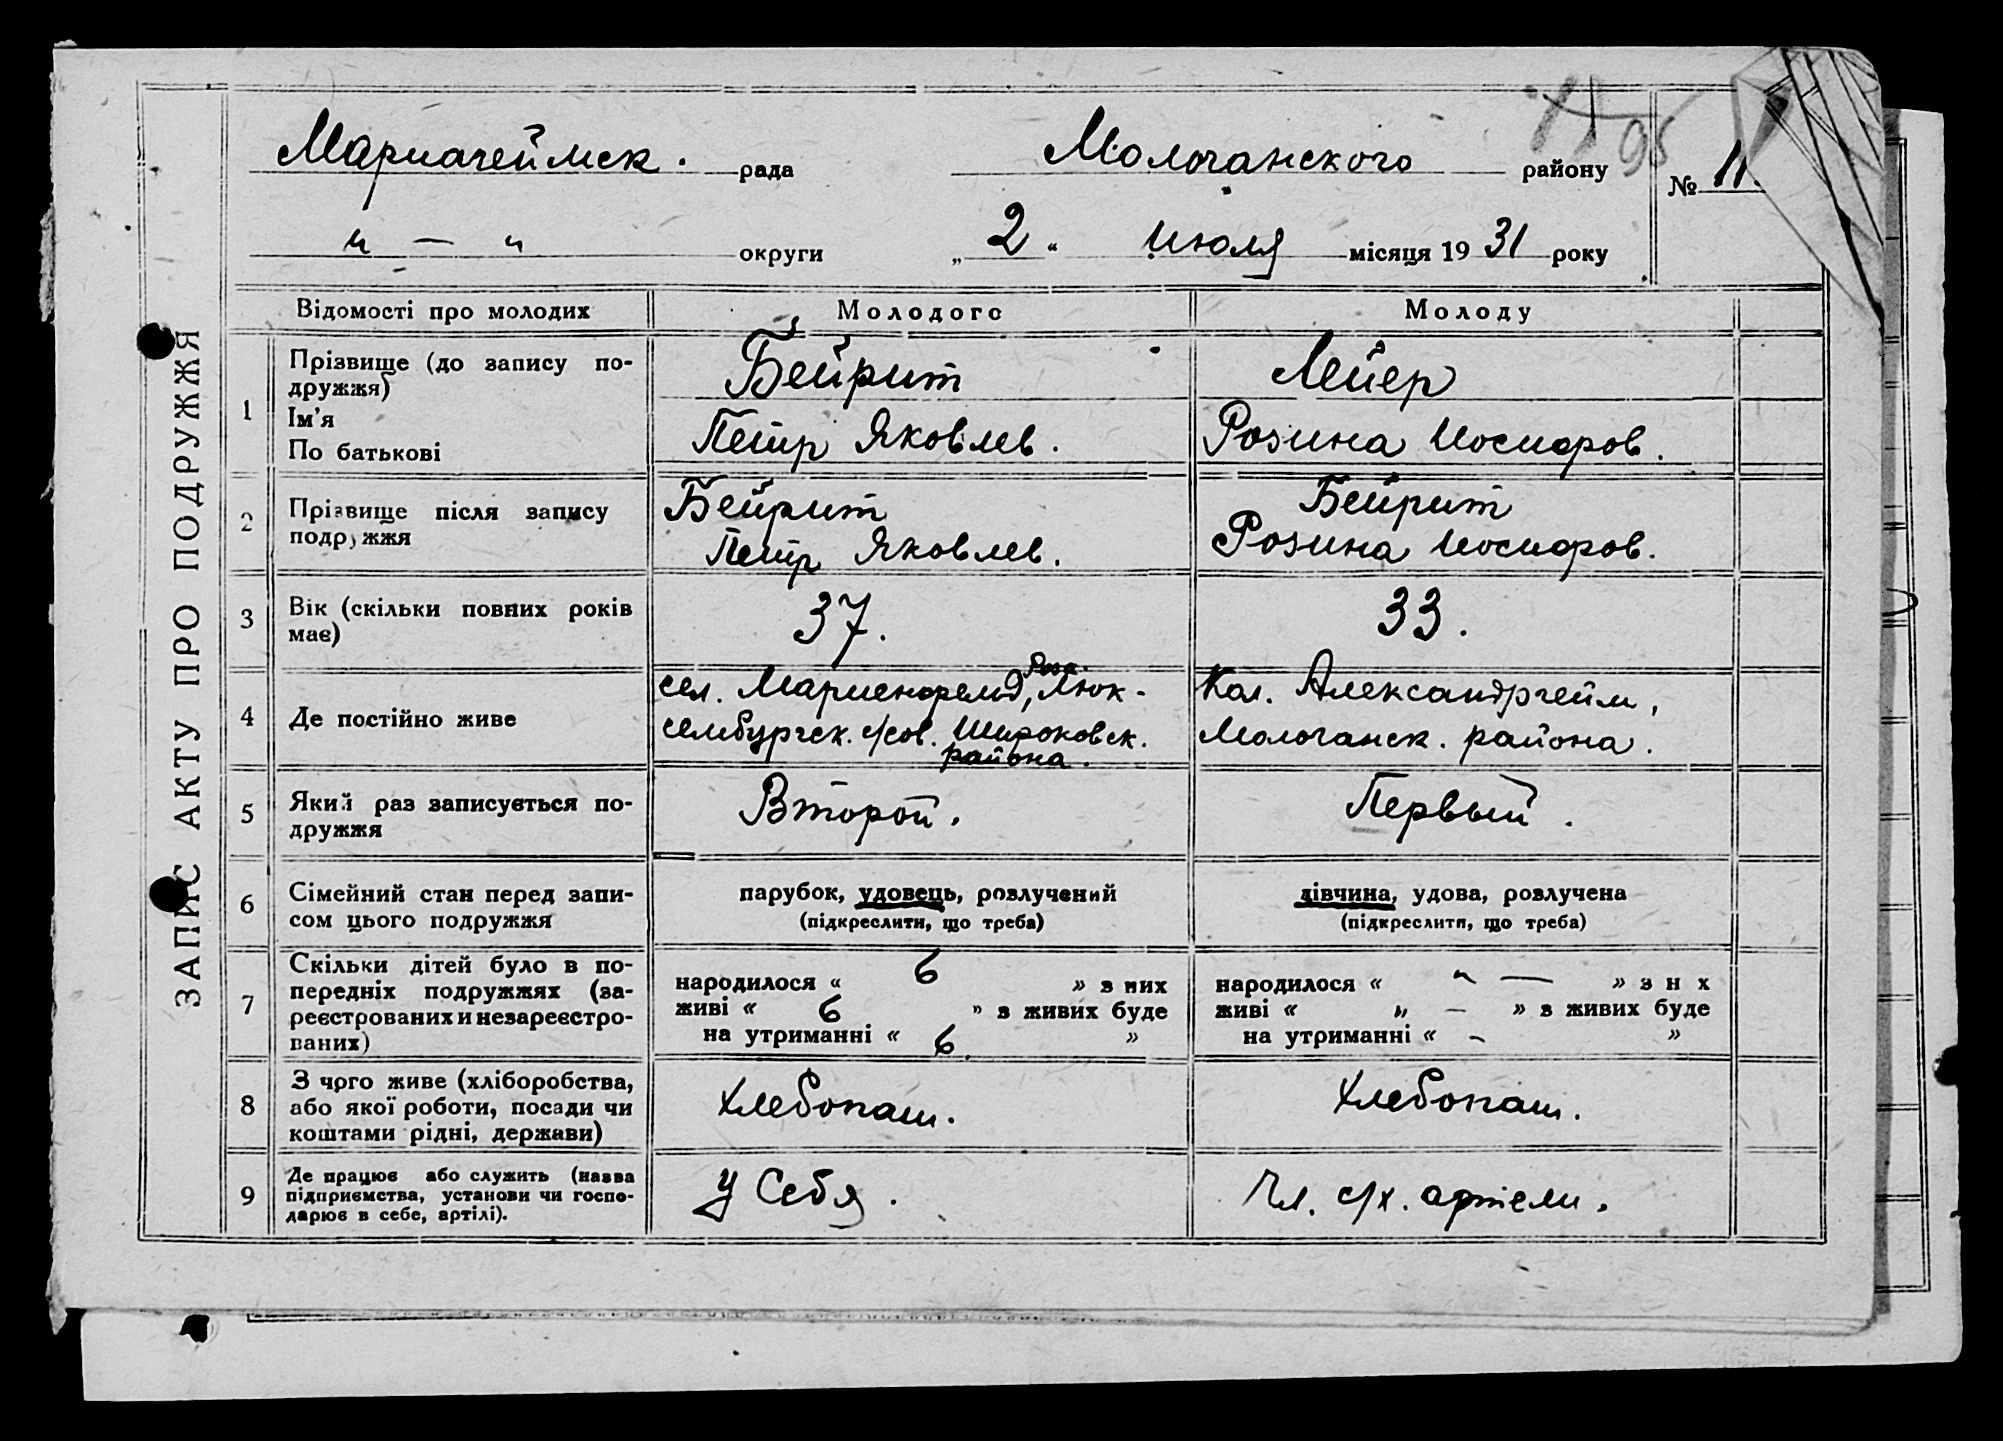 ЗАПИС АКТУ ПРО ПОДРУЖЖЯ
Мариагеймск. рада Молочанского району № 11
" — " округи „2“ Июля місяця 1931 року
Відомості про молодих Молодого Молоду
1 Прізвище (до запису по-
дружжя)
Ім'я
По батькові
Бейрит
Петр Яковлев.
Лейер
Розина Иосифов.
2 Прізвище після запису
подружжя
Бейрит
Петр Яковлев.
Бейрит
Розина Иосифов.
3 Вік (скільки повних років
має)
37.
33.
4 Де постійно живе
сел. Мариенфельд, Роза Люк-
сембургск. с/сов. Широковск.
района.
Кол. Александргейм,
Молочанск. района.
5 Який раз записується по-
дружжя
Второй.
Первый.
6 Сімейний стан перед запи-
сом цього подружжя
парубок, удовець, розлучений
(підкреслити, що треба)
дівчина, удова, розлучена
(підкреслити, що треба)
7 Скільки дітей було в по-
передніх подружжях (за-
реєстрованих и незареєстро-
ваних)
народилося « 6 » з них
живі « 6 » з живих буде
на утриманні « 6. »
народилося « " — » з н х
живі « " — » з живих буде
на утриманні « - »
8 З чого живе (хліборобства,
або якої роботи, посади чи
коштами рідні, держави)
Хлебопаш.
Хлебопаш.
9 Де працює або служить (назва
підприємства, установи чи госпо-
дарює в себе, артілі).
У себя.
Чл. с/х. артели.